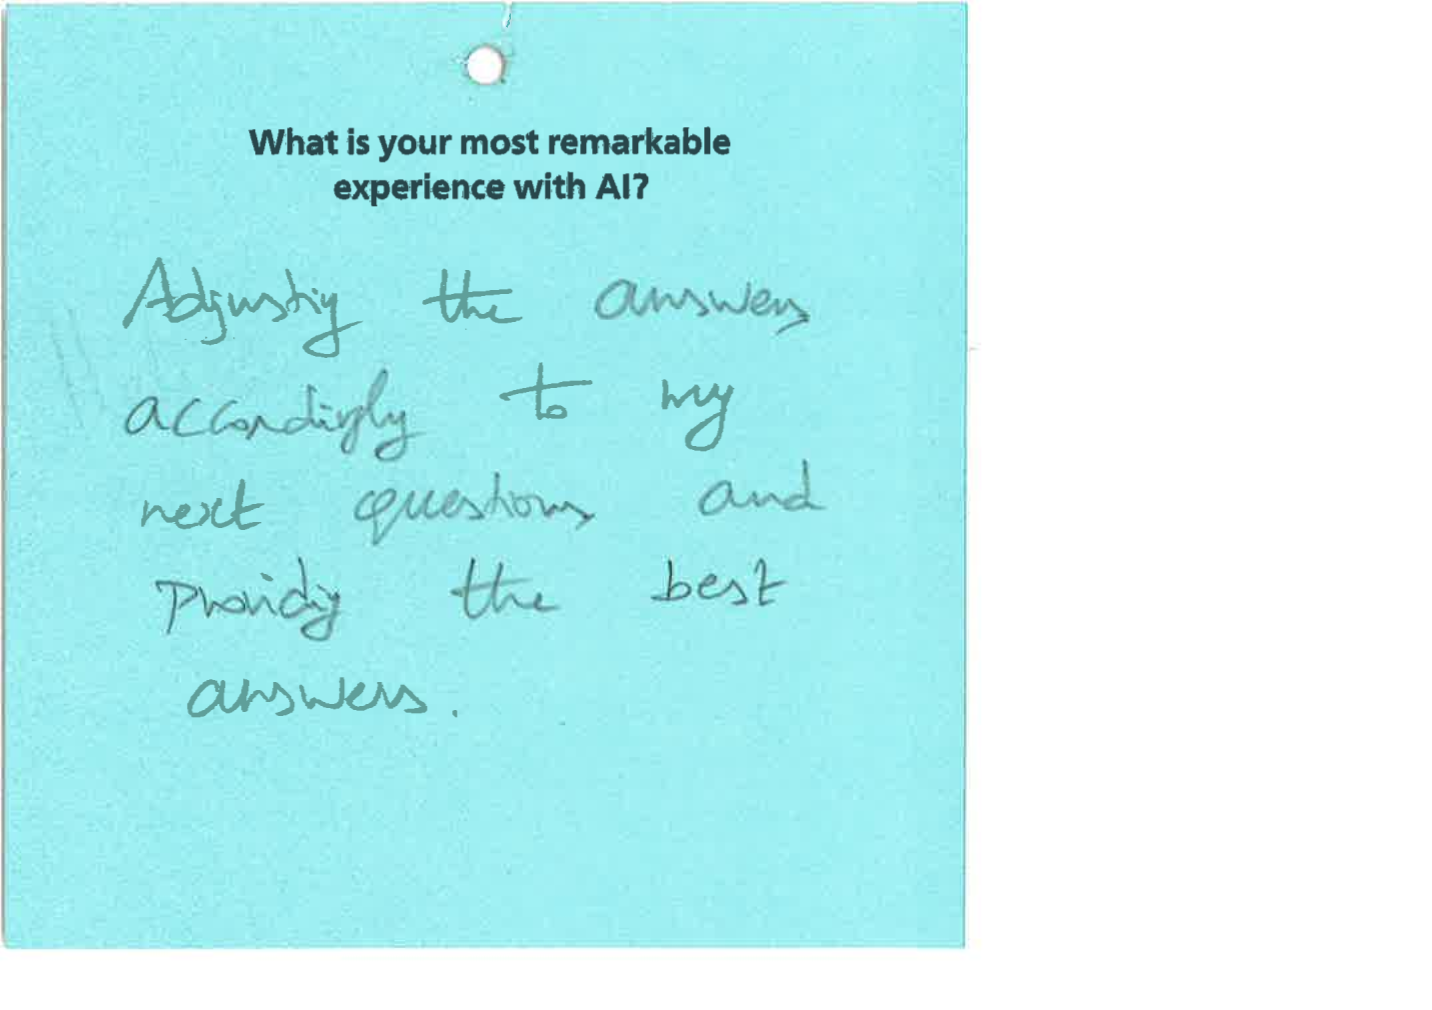 What is your most remarkable
experience with AI?
Adjusting the answers
accordingly to my
next questions and
providing the best
answers.